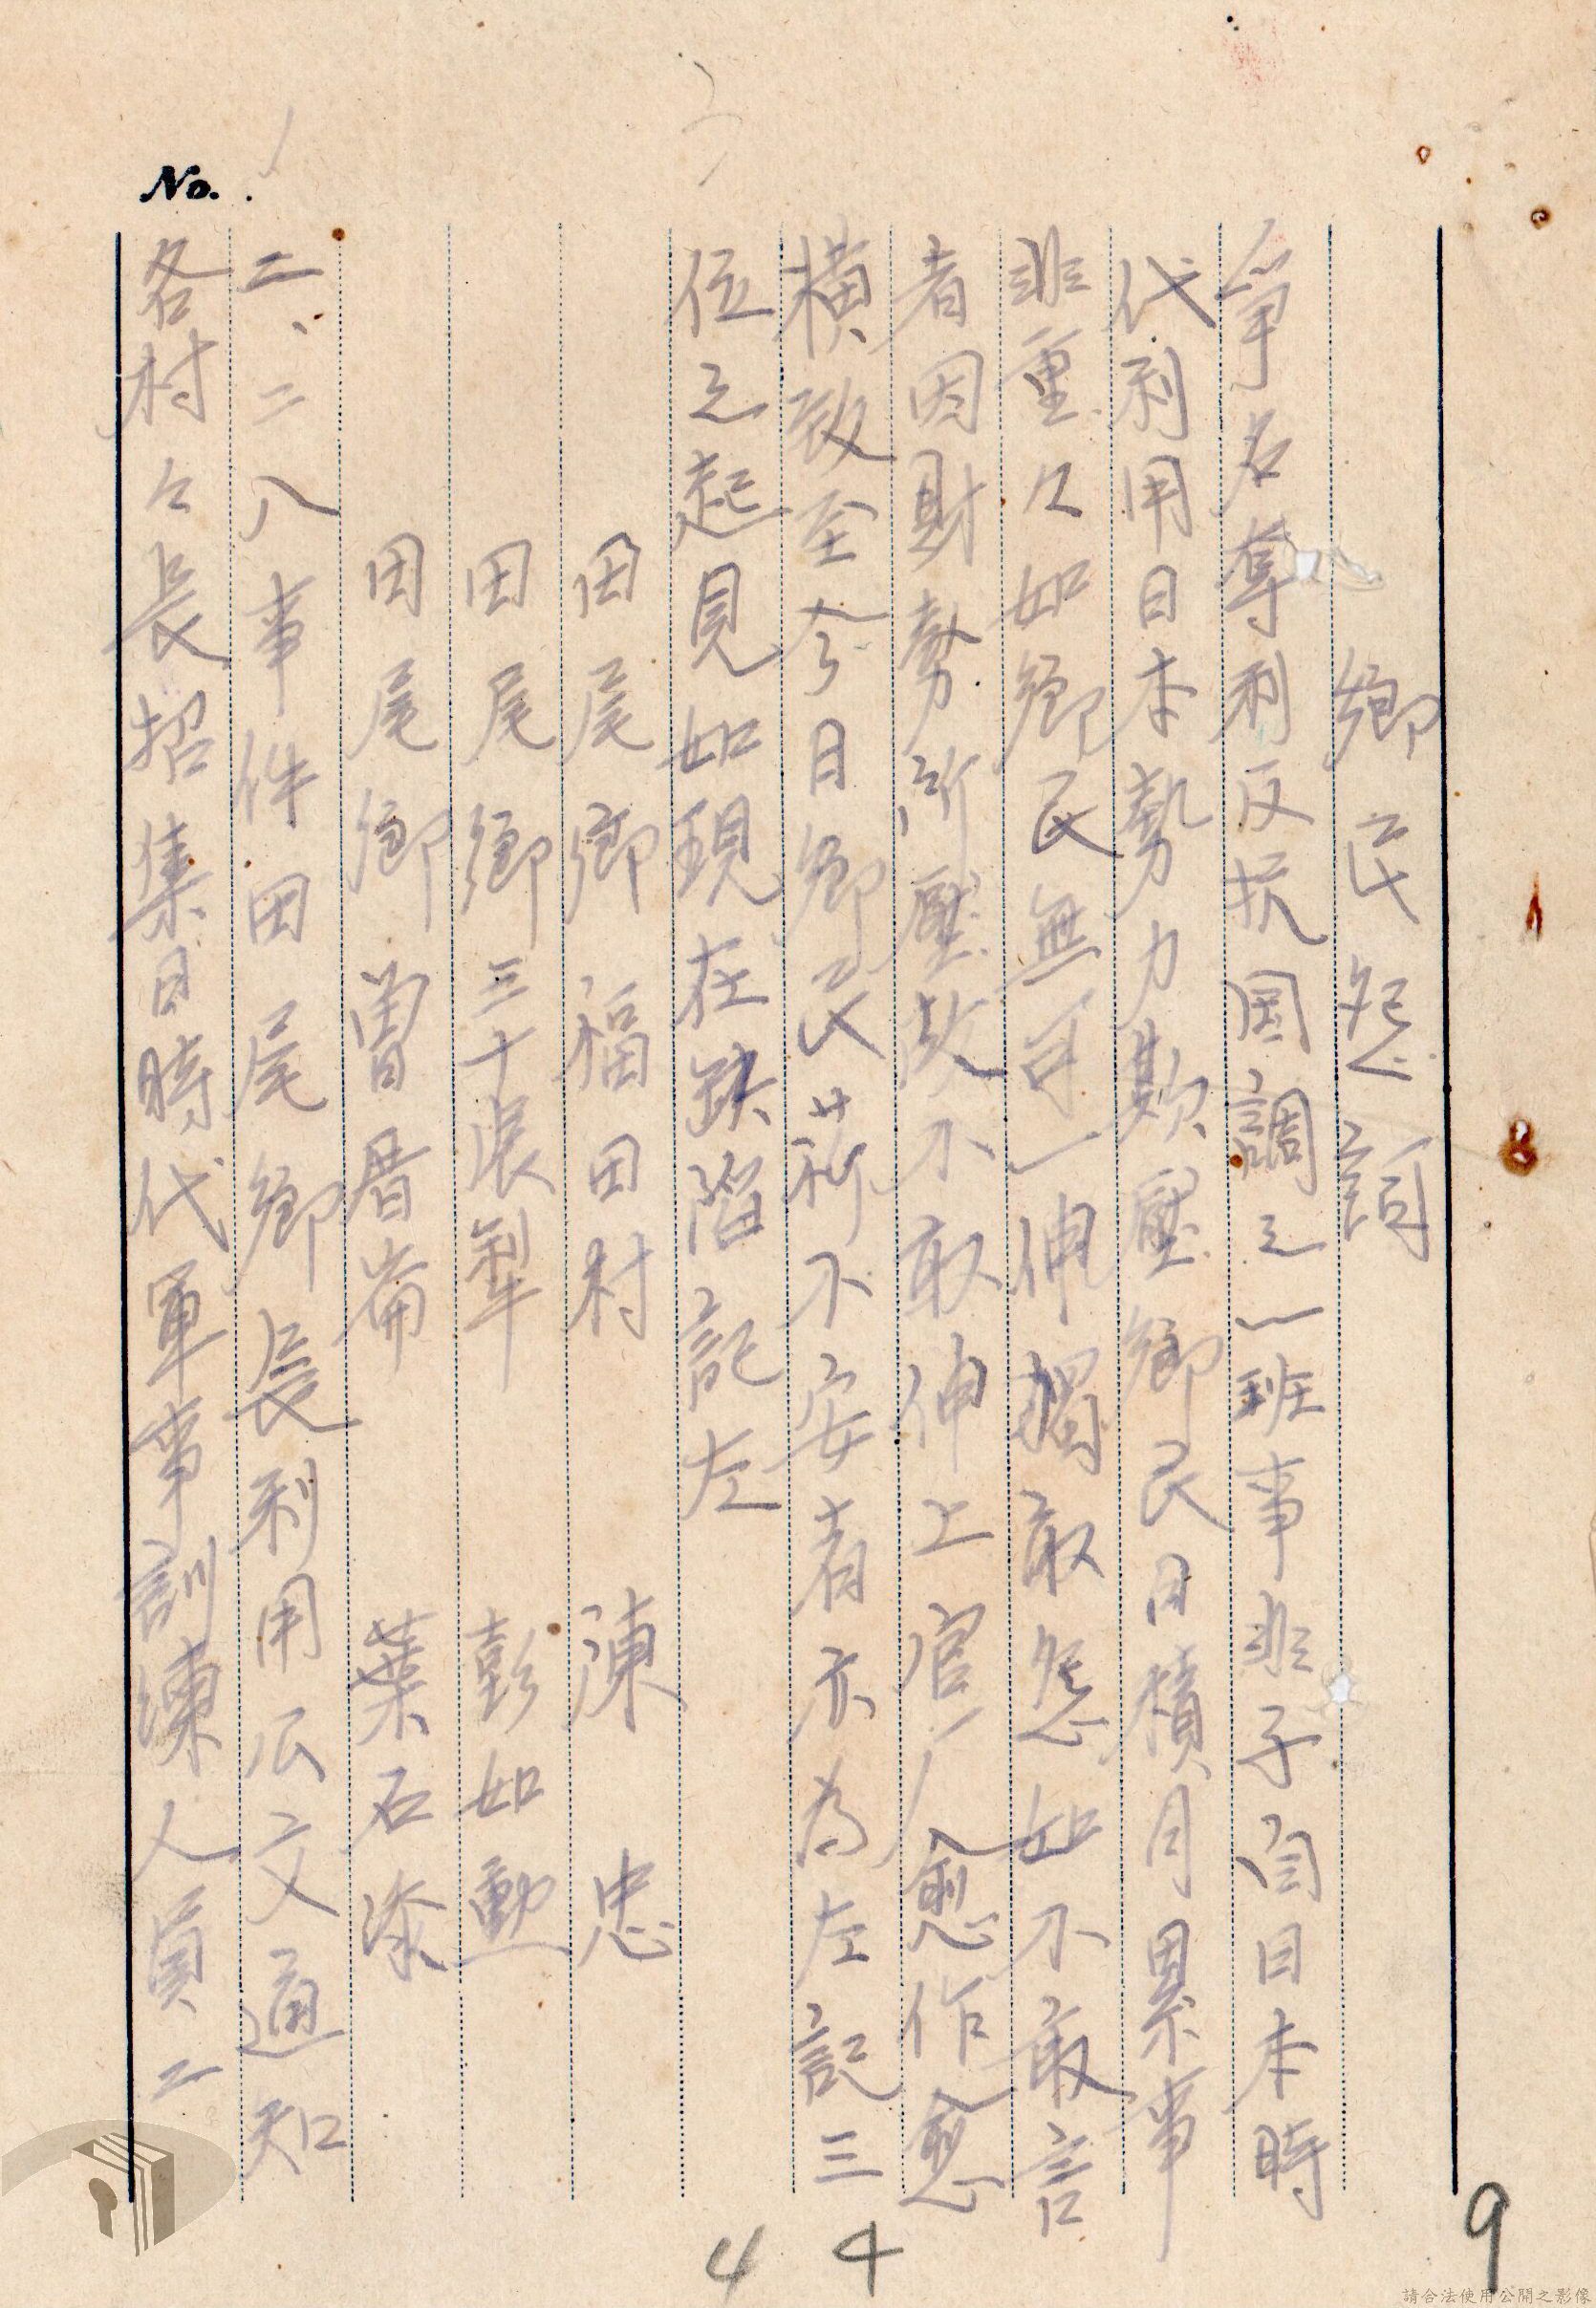 No.
鄉民怨詞
爭名奪利反抗國調之一班事非子自日本時
代利用日本勢力欺壓鄉民日積月累事
非重々如鄉民無可一伸獨敢怨如不敢言
者因財勢所壓故不敢伸上官厂人愈作愈
橫致至今日鄉民苏不安者亦為左記三
位之起見如現在缺陷記左
田尾鄉福田村 陳忠
田尾鄉三十張犁 彭如勳
田尾鄉曾厝崙 葉石漆
二、二八事件田尾鄉長利用公文通知
各村々長招集日時代軍事訓練人員二
4 4
9
請合法使用公開之影像